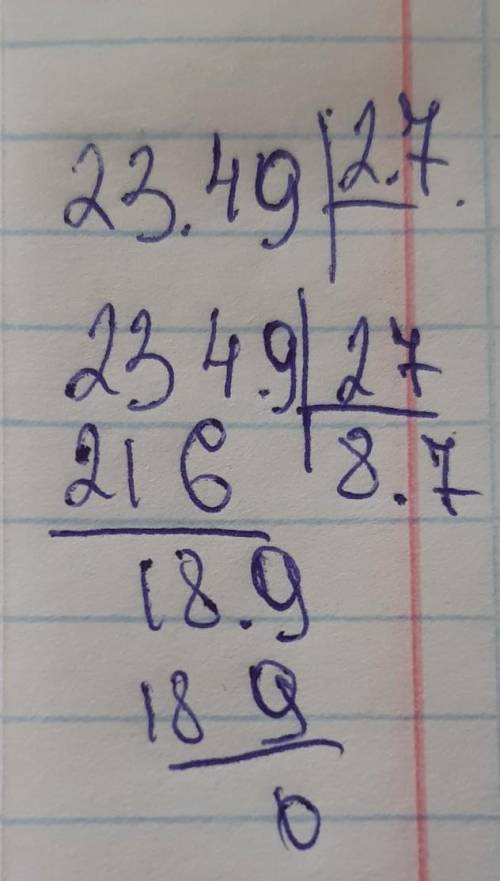 23.49 2.7
234.9 27
216 8.7
18.9
189
0